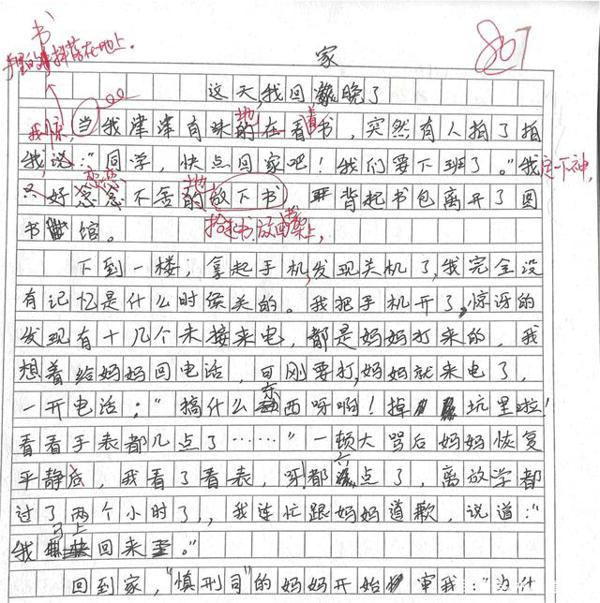 书
手里的书掉落在地上。
80分
家
这天,我回家晚了
当我津津有味的在看书，突然有人拍了拍
地
着
我惊，
我说："同学，快点回家吧！我们要下班了。"我
定一下神，
只好念念不舍的放下书，背起书包离开了图
恋恋
地
书馆。
拾起书，放回书架上，
下到一楼，拿起手机,发现关机了,我完全没
有记忆是什么时候关的。我把手机开了,惊讶的
发现有十几个未接来电，都是妈妈打来的，我
想着给妈妈回电话，可刚要打,妈妈就来电了，
一开电话："搞什么东西呀啊！掉坑里啦!
看看手表都几点了……"一顿大骂后妈妈恢复
平静后，我看了看表，呀!都六点了，离放学都
过了两个小时了，我连忙跟妈妈道歉，说道："
我马上回来。"
回到家，"慎刑司"的妈妈开始审我："为什